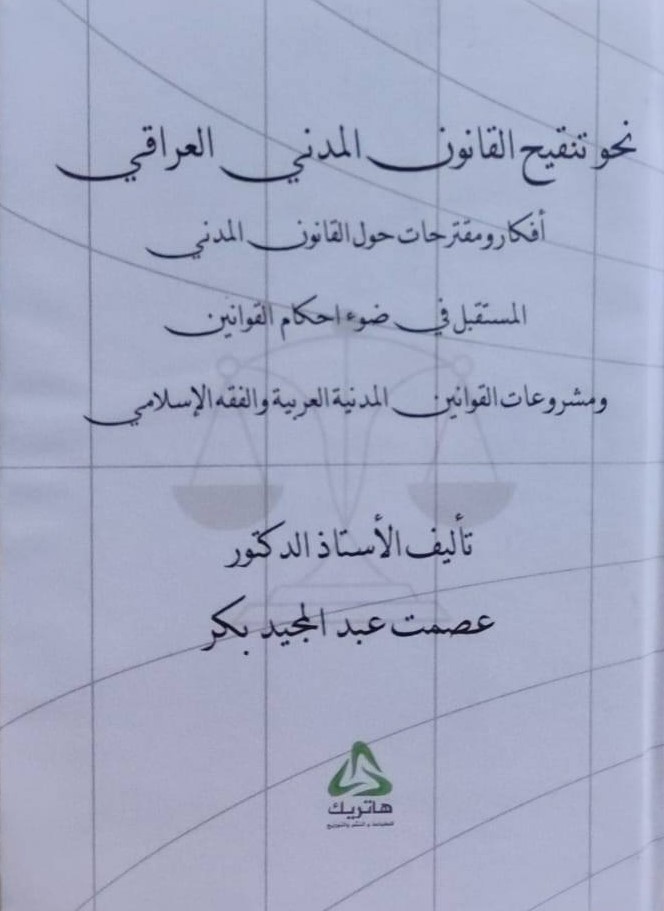 نحو تنقيح القانون المدني العراقي
أفكار ومقترحات حول القانون المدني
المستقبل في ضوء احكام القوانين
ومشروعات القوانين المدنية العربية والفقه الإسلامي
تأليف الأستاذ الدكتور
عصمت عبد المجيد بكر
هاتريك
للطباعة و النشر والتوزيع